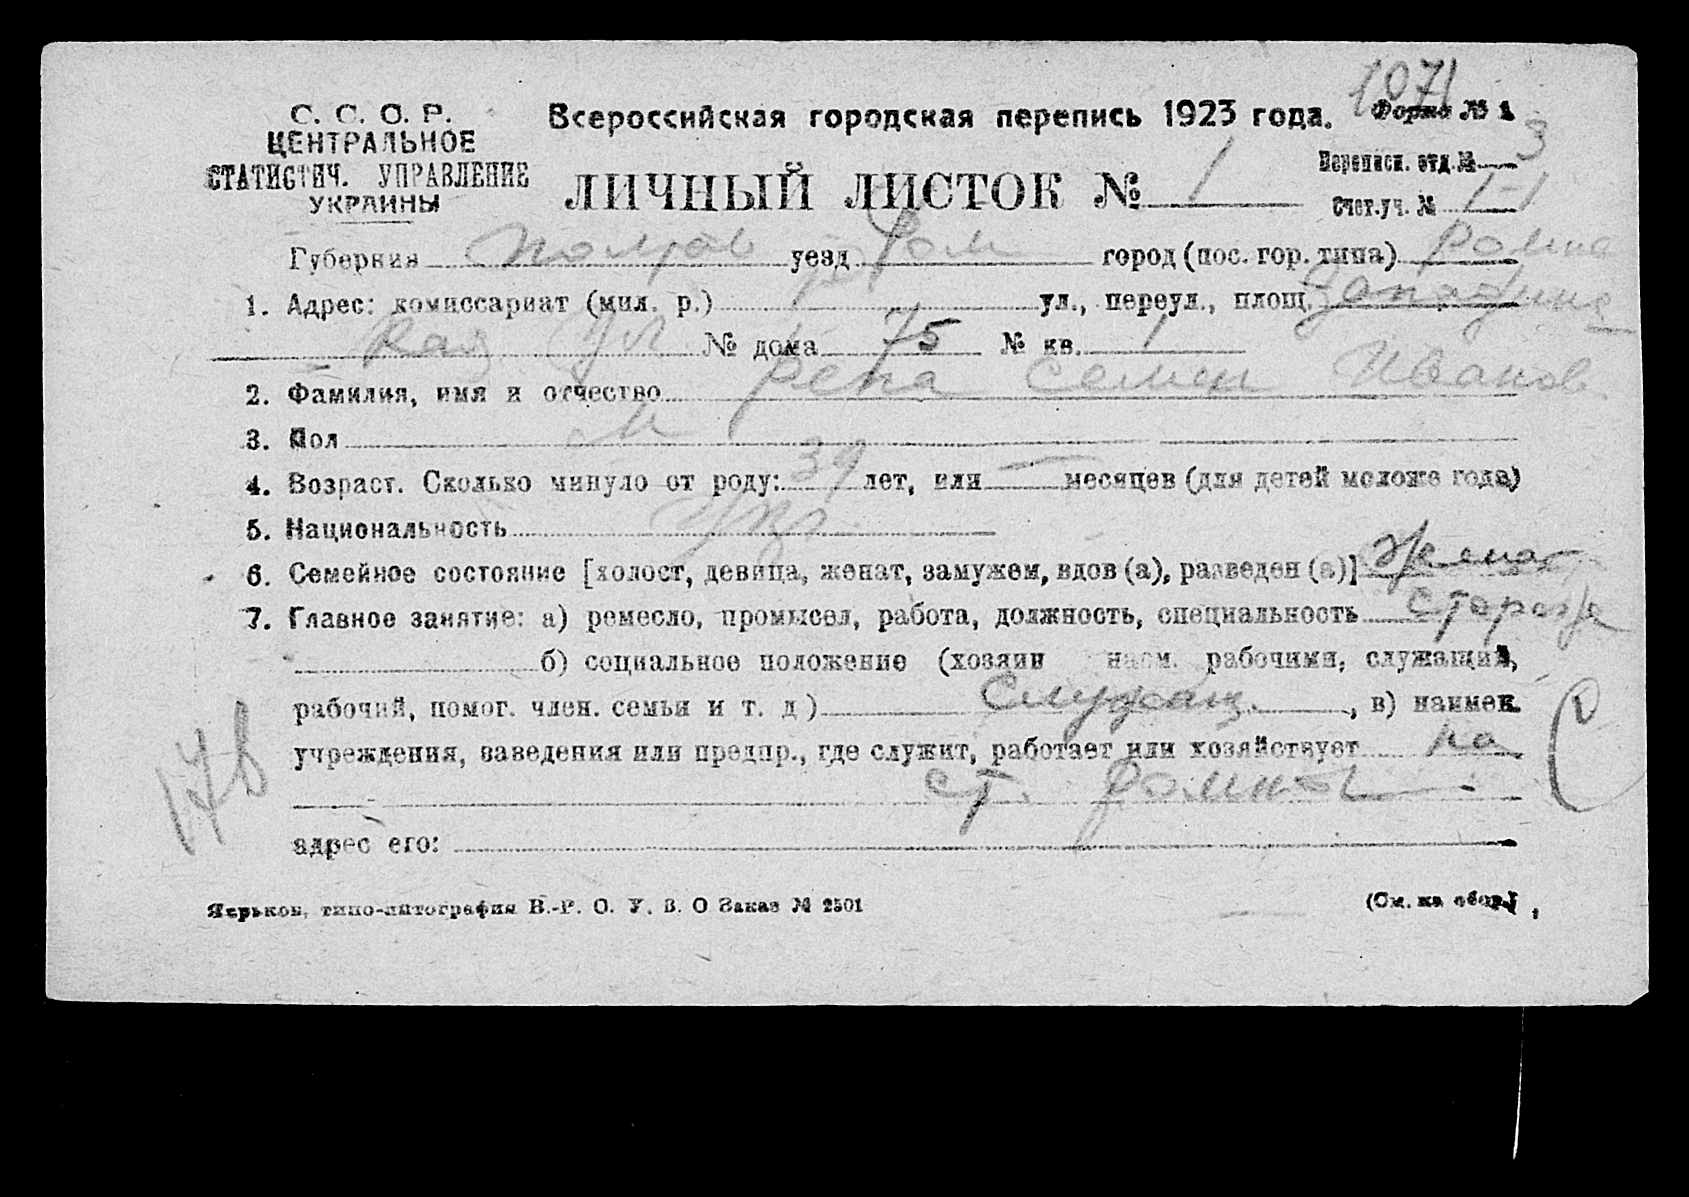 1071
С. С. С. Р.
ЦЕНТРАЛЬНОЕ
СТАТИСТИЧ. УПРАВЛЕНИЕ
УКРАИНЫ
Всероссийская городская перепись 1923 года. Форма № 1
ЛИЧНЫЙ ЛИСТОК № 1
Переписн. отд. № 3
Счет.уч. № 1-1
Губерния Полтав уезд Ром город (пос. гор. типа) Ромны
1. Адрес: комиссариат (мил. р.) ул., переул., площ.
кая ул № дома 75 № кв. 1
2. Фамилия, имя и отчество Репа Семен Иванов
3. Пол м
4. Возраст. Сколько минуло от роду: 39 лет, или — месяцев (для детей моложе года)
5. Национальность Укр.
6. Семейное состояние [холост, девица, женат, замужем, вдов (а), разведен (а)] женат
7. Главное занятие: а) ремесло, промысел, работа, должность, специальность сторож
б) социальное положение (хозяин наем. рабочими, служащий,
рабочий, помог. член. семьи и т. д ) Служащ. , в) наимен.
учреждения, заведения или предпр., где служит, работает или хозяйствует на
ст. Ромны
адрес его:
178
Харьков, типо-литография В.-Р. О. У. В. О Заказ № 2501
(См. на обор.)